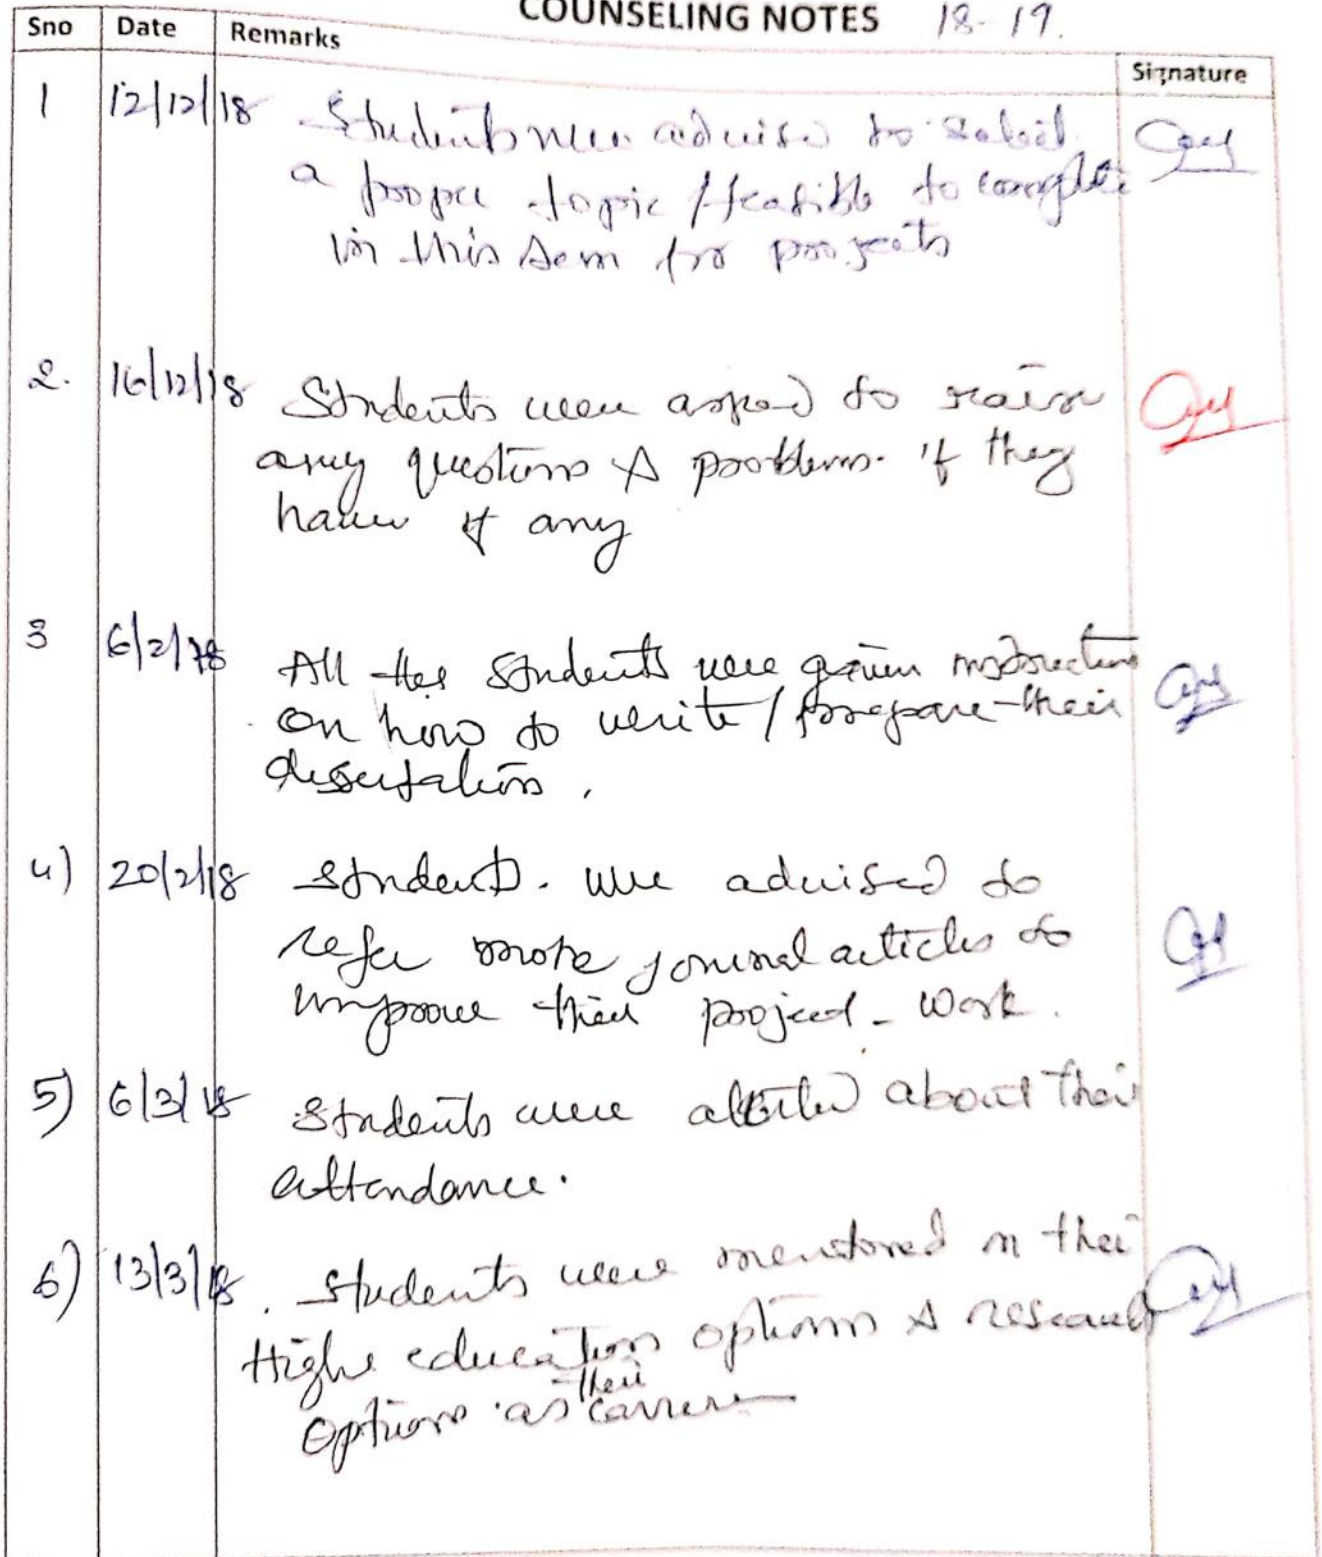 COUNSELING NOTES 18-19.
Sno Date Remarks Signature
1 12/12/18 Students were advise to select
a proper topic / feasible to complete
in this sem for projects
2. 16/12/18 Students were asked to raise
any questions & problems. if they
have if any
3 6/2/18 All the students were given instructions
on how to write / prepare their
dissertations.
4) 20/2/18 Students. were advised to
refer more journal articles to
improve their project - work.
5) 6/3/18 Students were alerted about their
attendance.
6) 13/3/18. Students were mentored in their
Highe education options & research
their
options as carrere